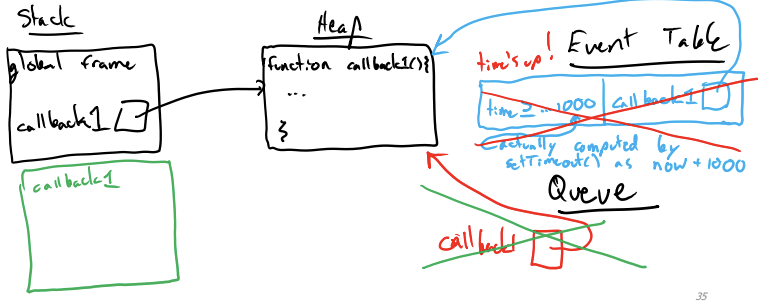 Stack
global frame
callback1
callback1
Heap
function callback1(){
...
}
time's up!
Event Table
time ≥ ...1000
callback1
actually computed by
setTimeout() as now + 1000
Queue
callback1
35